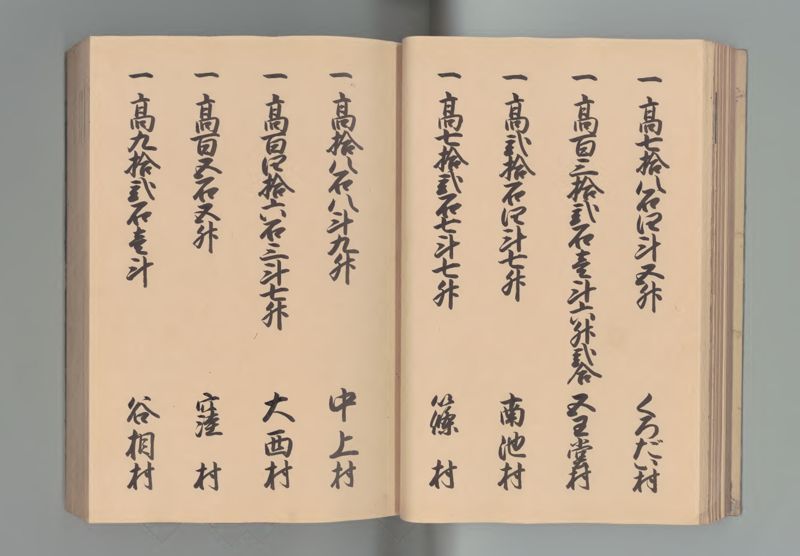 一 高七拾八石四斗五升 くろだい村
一 高百三拾弐石壱斗六升弐合 五王堂村
一 高弐拾石四斗七升 南池村
一 高七拾弐石七斗七升 篠村
一 高拾八石八斗九升 中上村
一 高百四拾六石三斗七升 大西村
一 高百五石五升 窪村
一 高九拾弐石壱斗 谷相村